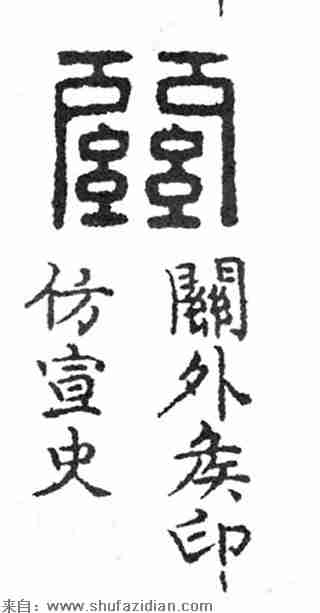 關
關外矦印
仿宣史
来自：www.shufazidian.com